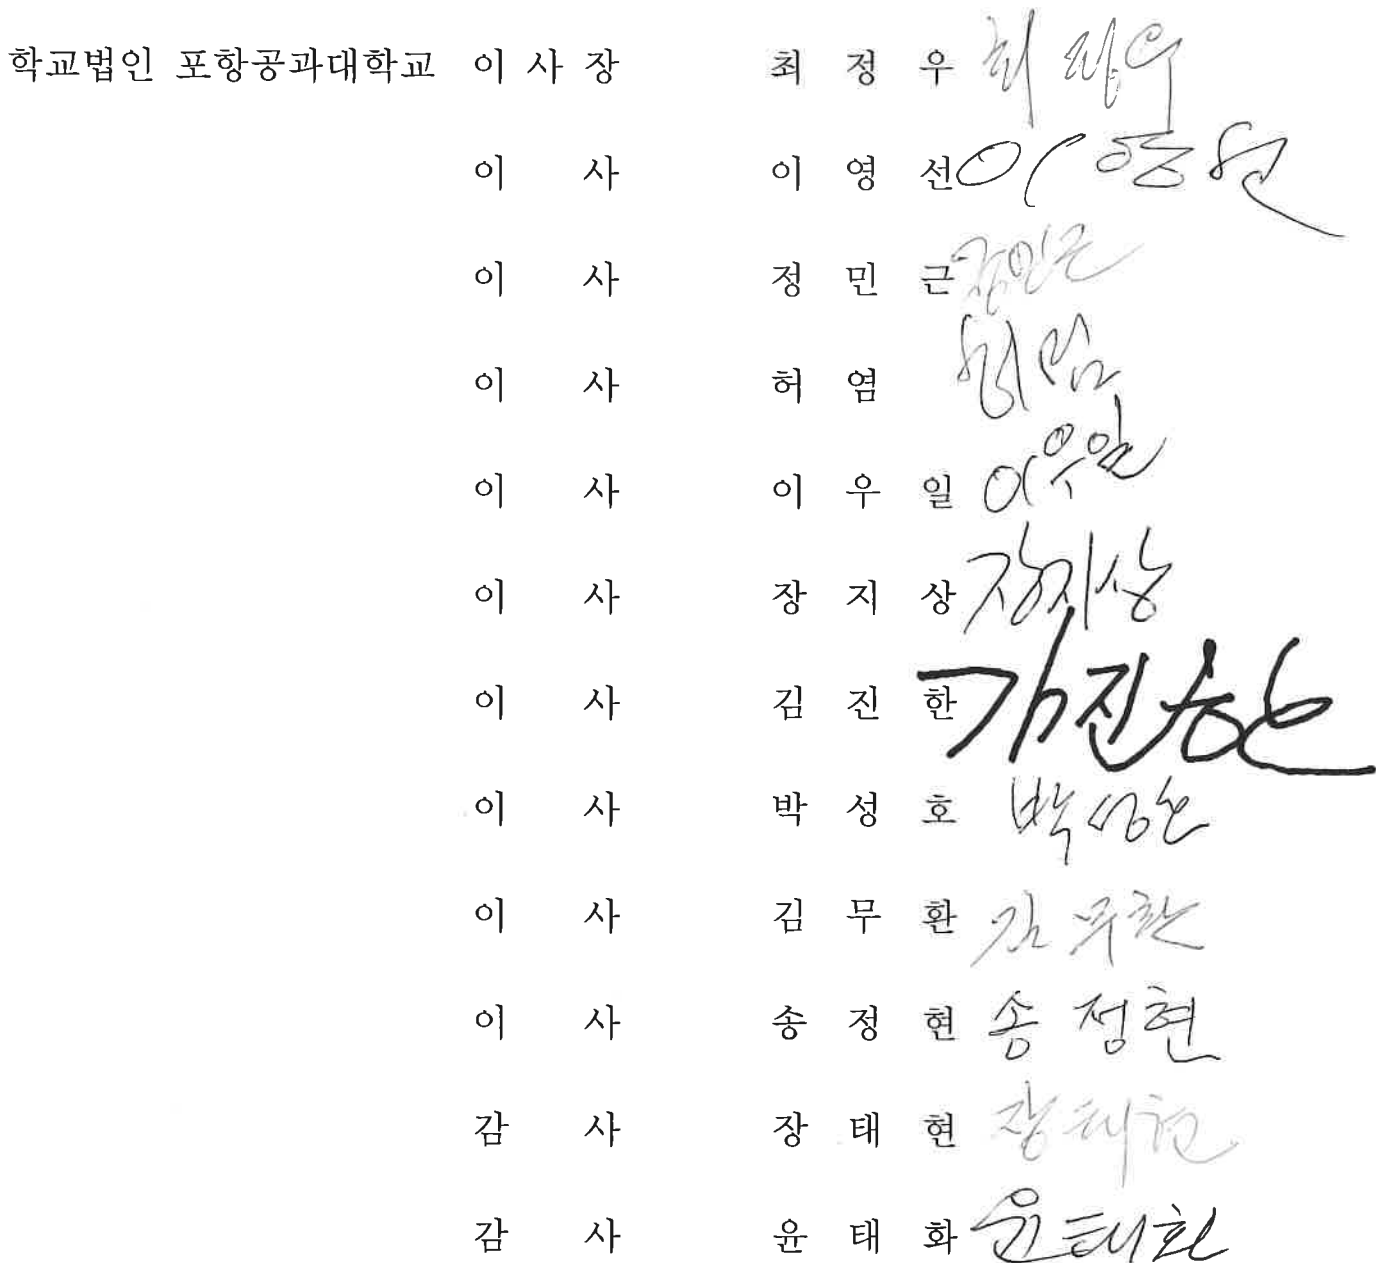 학교법인 포항공과대학교 이 사 장 최 정 우 최 정 우
이 사 이 영 선 이 영 선
이 사 정 민 근 정민근
이 사 허 염 허 염
이 사 이 우 일 이우일
이 사 장 지 상 장지상
이 사 김 진 한 김진한
이 사 박 성 호 박성호
이 사 김 무 환 김 무환
이 사 송 정 현 송 정현
감 사 장 태 현 장태현
감 사 윤 태 화 윤태화